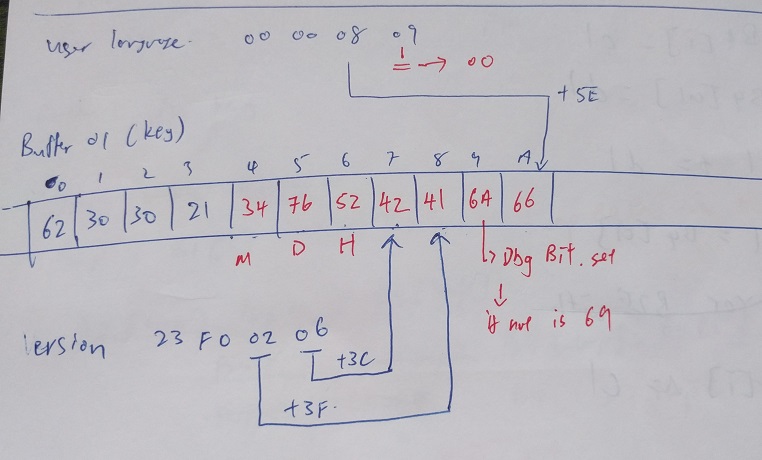 User language. 00 00 08 09
= → 00
+5E
Buffer 01 (key)
00 1 2 3 4 5 6 7 8 9 A
62 30 30 21 34 76 52 42 41 6A 66
M D H
Dbg Bit. set
if not is 69
Version 23 F0 02 06
+3C
+3F.